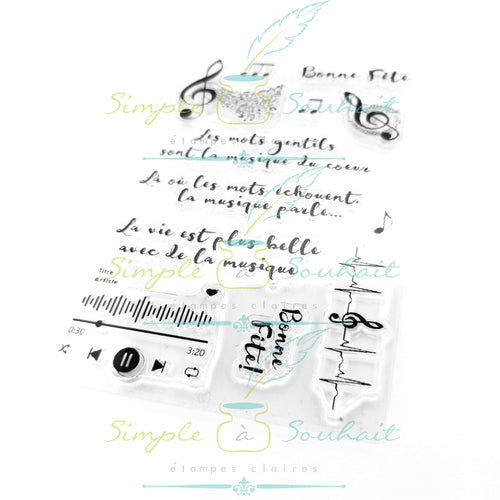 Bonne Fête
Simple à Souhait
étampes claires
Les mots gentils
sont la musique du coeur
Là où les mots échouent,
la musique parle...
La vie est plus belle
avec de la musique
Simple à Souhait
étampes claires
titre
artiste
0:30
3:20
Bonne
Fête!
Simple à Souhait
étampes claires